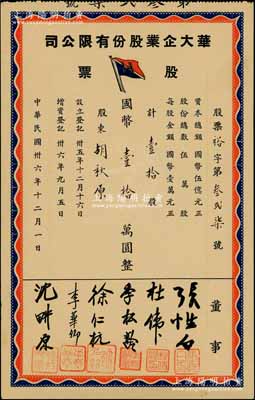 華大企業股份有限公司
股票
股票裕字第叁貳柒號
資本總額 國幣伍億元正
股份總數 伍萬股
每股金額 國幣壹萬元正
計壹拾股
國幣壹拾萬圓整
股東 胡秋原
設立登記 卅五年十二月十六日
增資登記 卅六年九月五日
中華民國卅六年十二月一日
董事
杜偉
徐仁杭
李華卿